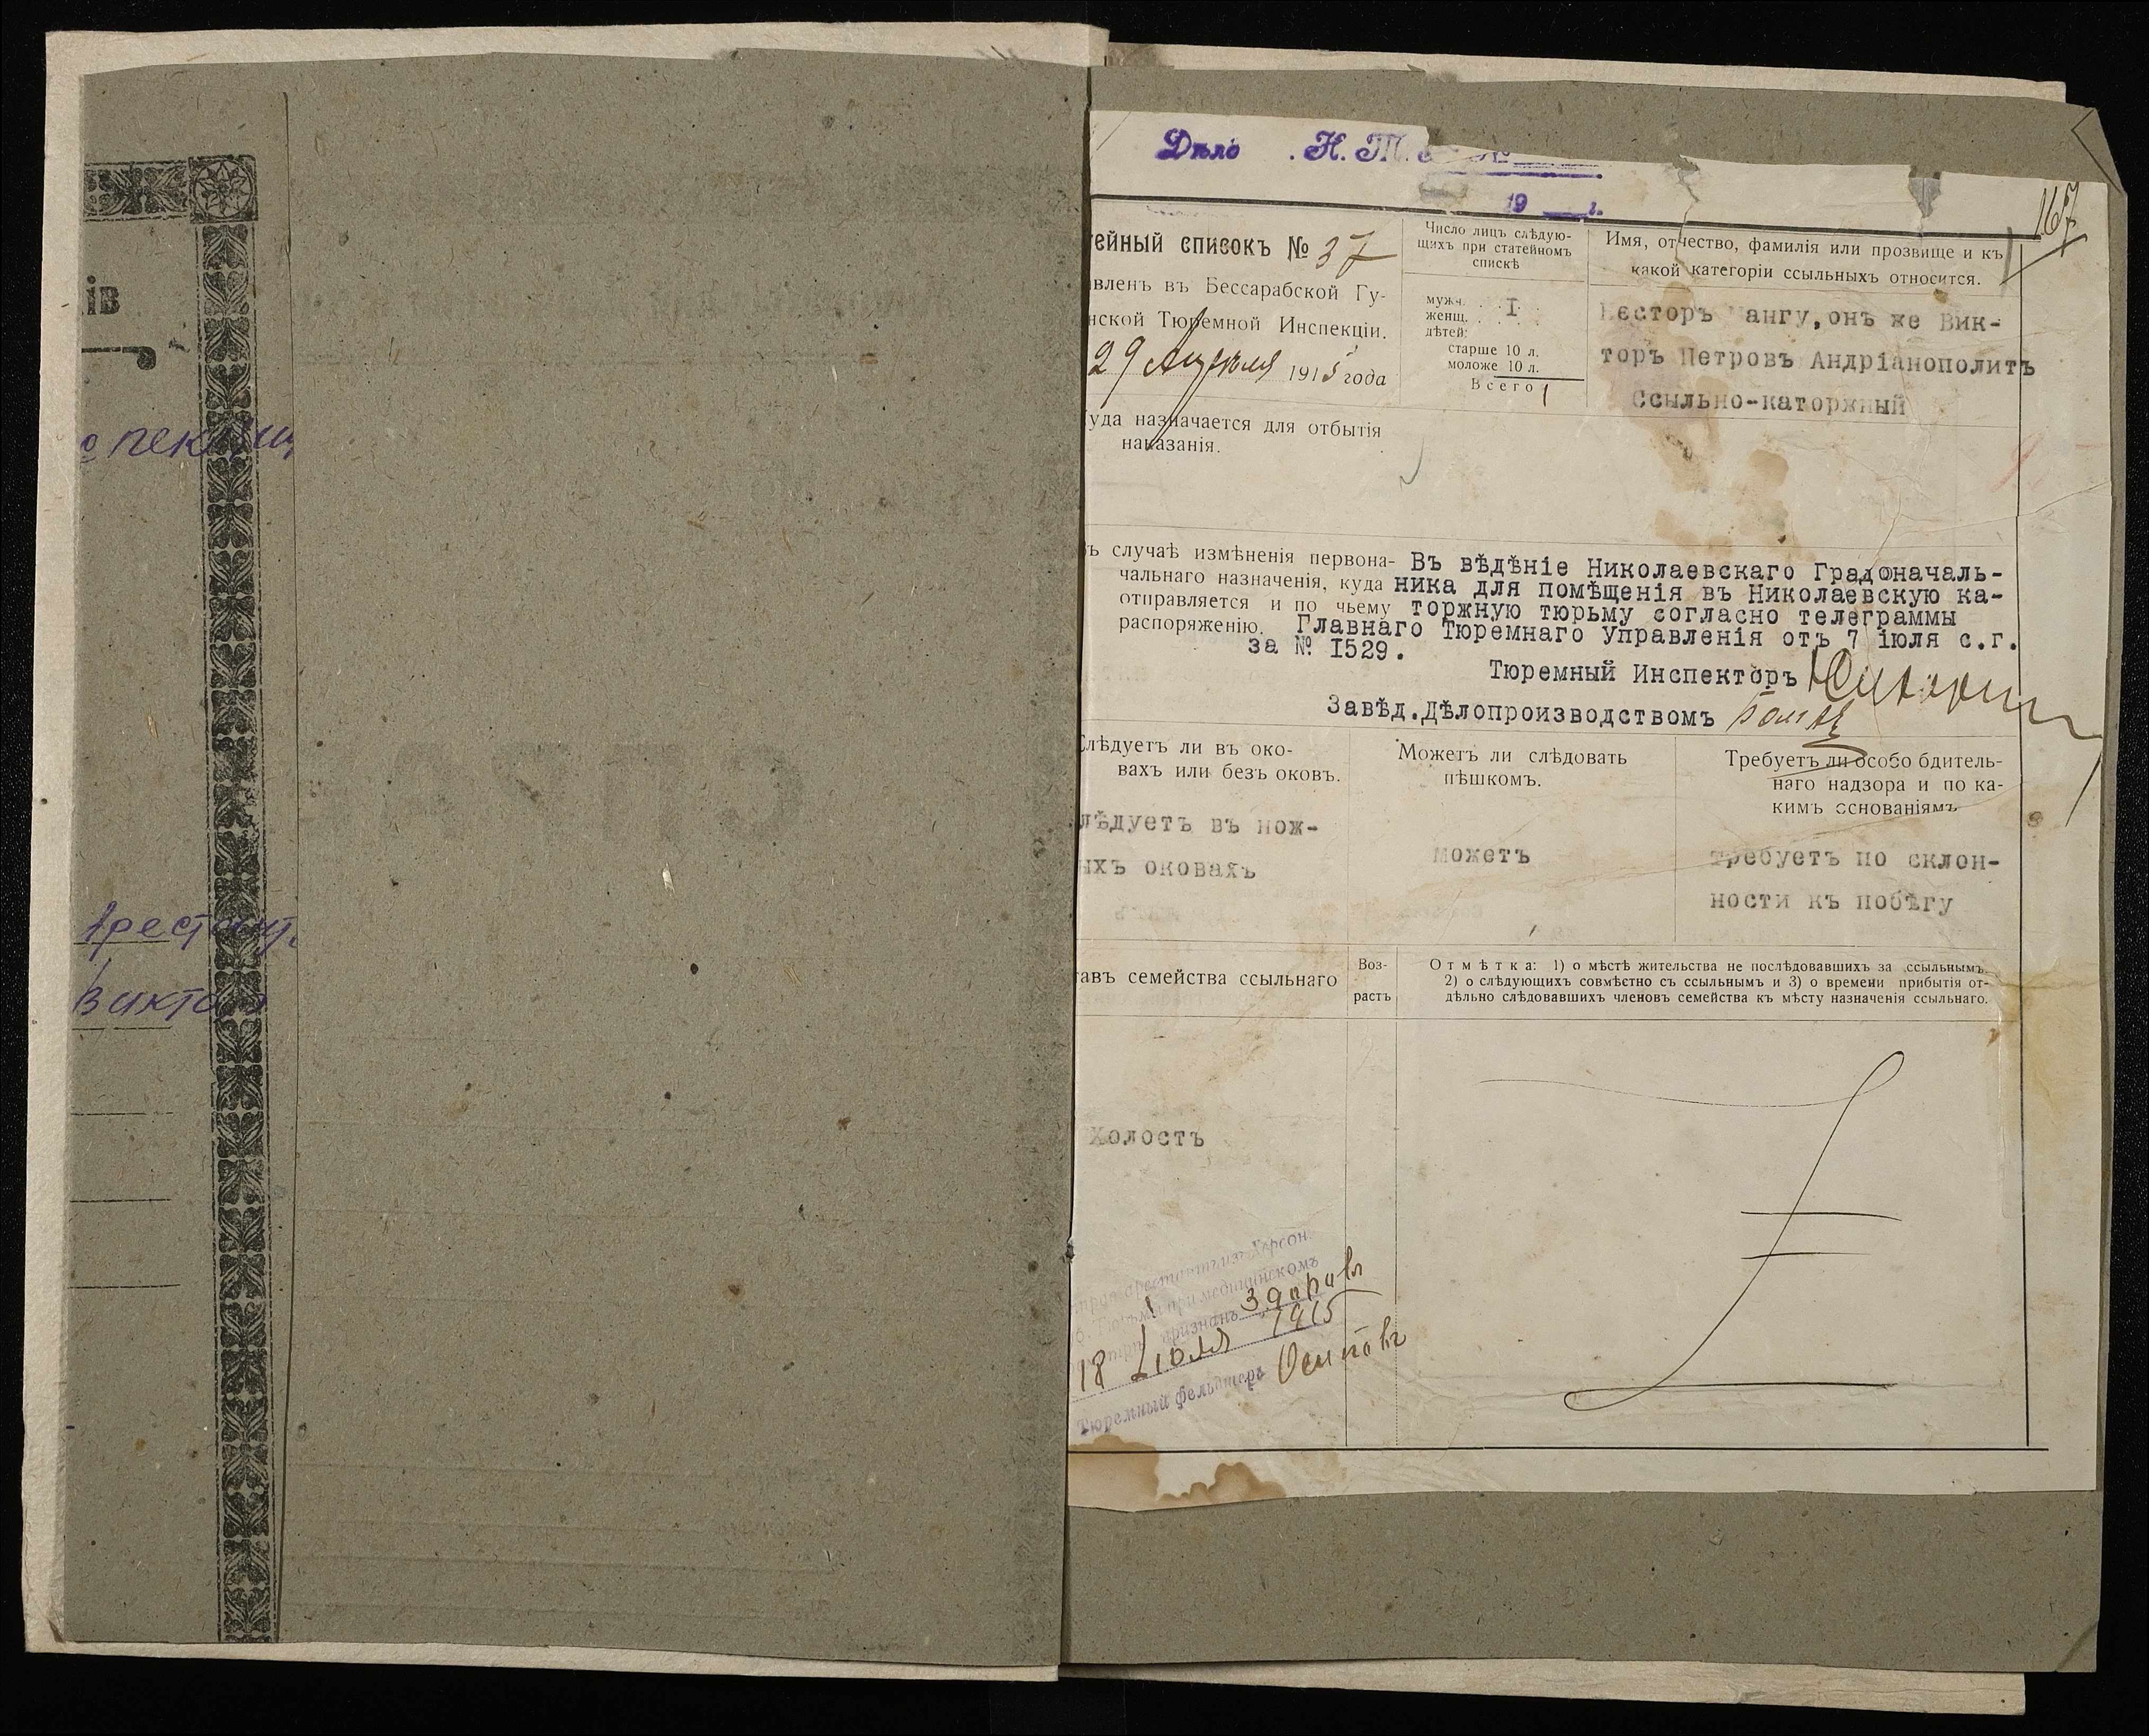 ів
пекціи
Арестант
Виктор
Дѣло Н. Т.
19 г.
167
тейный списокъ № 37
вленъ въ Бессарабской Гу-
нской Тюремной Инспекціи.
29 Апрѣля 1915 года
Число лицъ слѣдую-
щихъ при статейномъ
спискѣ
мужч. . . I .
женщ. . . . .
дѣтей:
старше 10 л.
моложе 10 л.
Всего 1
Имя, отчество, фамилія или прозвище и къ
какой категоріи ссыльныхъ относится.
Несторъ ангу, онъ же Вик-
торъ Петровъ Андріанополитъ
Ссыльно-каторжный
уда назначается для отбытія
наказанія.
ъ случаѣ измѣненія первона-
чальнаго назначенія, куда
отправляется и по чьему
распоряженію.
Въ вѣдѣніе Николаевскаго Градоначаль-
ника для помѣщенія въ Николаевскую ка-
торжную тюрьму согласно телеграммы
Главнаго Тюремнаго Управленія отъ 7 іюля с.г.
за № I529.
Тюремный Инспекторъ
Завѣд.Дѣлопроизводствомъ
Слѣдуетъ ли въ око-
вахъ или безъ оковъ.
лѣдуетъ въ нож-
ыхъ оковахъ
Можетъ ли слѣдовать
пѣшкомъ.
можетъ
Требуетъ ли особо бдитель-
наго надзора и по ка-
кимъ основаніямъ
требуетъ по склон-
ности къ побѣгу
тавъ семейства ссыльнаго
Воз-
растъ
Отмѣтка: 1) о мѣстѣ жительства не послѣдовавшихъ за ссыльнымъ,
2) о слѣдующихъ совмѣстно съ ссыльнымъ и 3) о времени прибытія от-
дѣльно слѣдовавшихъ членовъ семейства къ мѣсту назначенія ссыльнаго.
Холостъ
арестантъ изъ Херсон.
Тюрьмы при медицинскомъ
признанъ здоровъ
18 Іюля 1915
Тюремный фельдшеръ Осиповъ